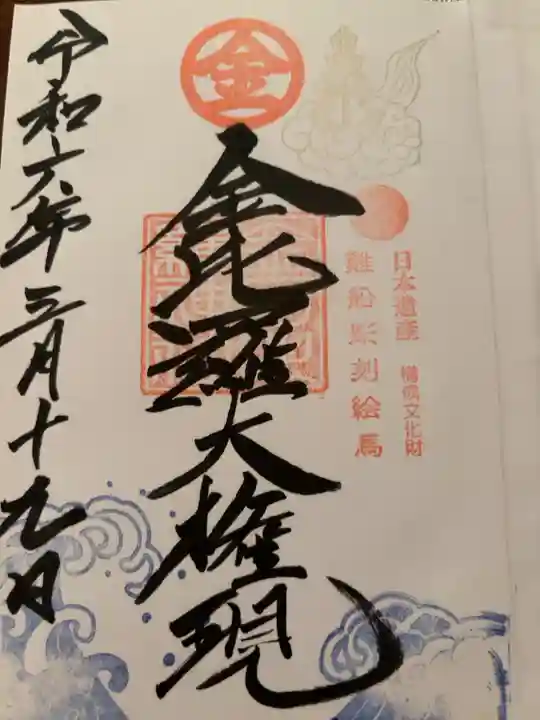 金
日本遺産 構成文化財
難船彫刻絵馬
金毘羅大権現
令和六年三月十九日